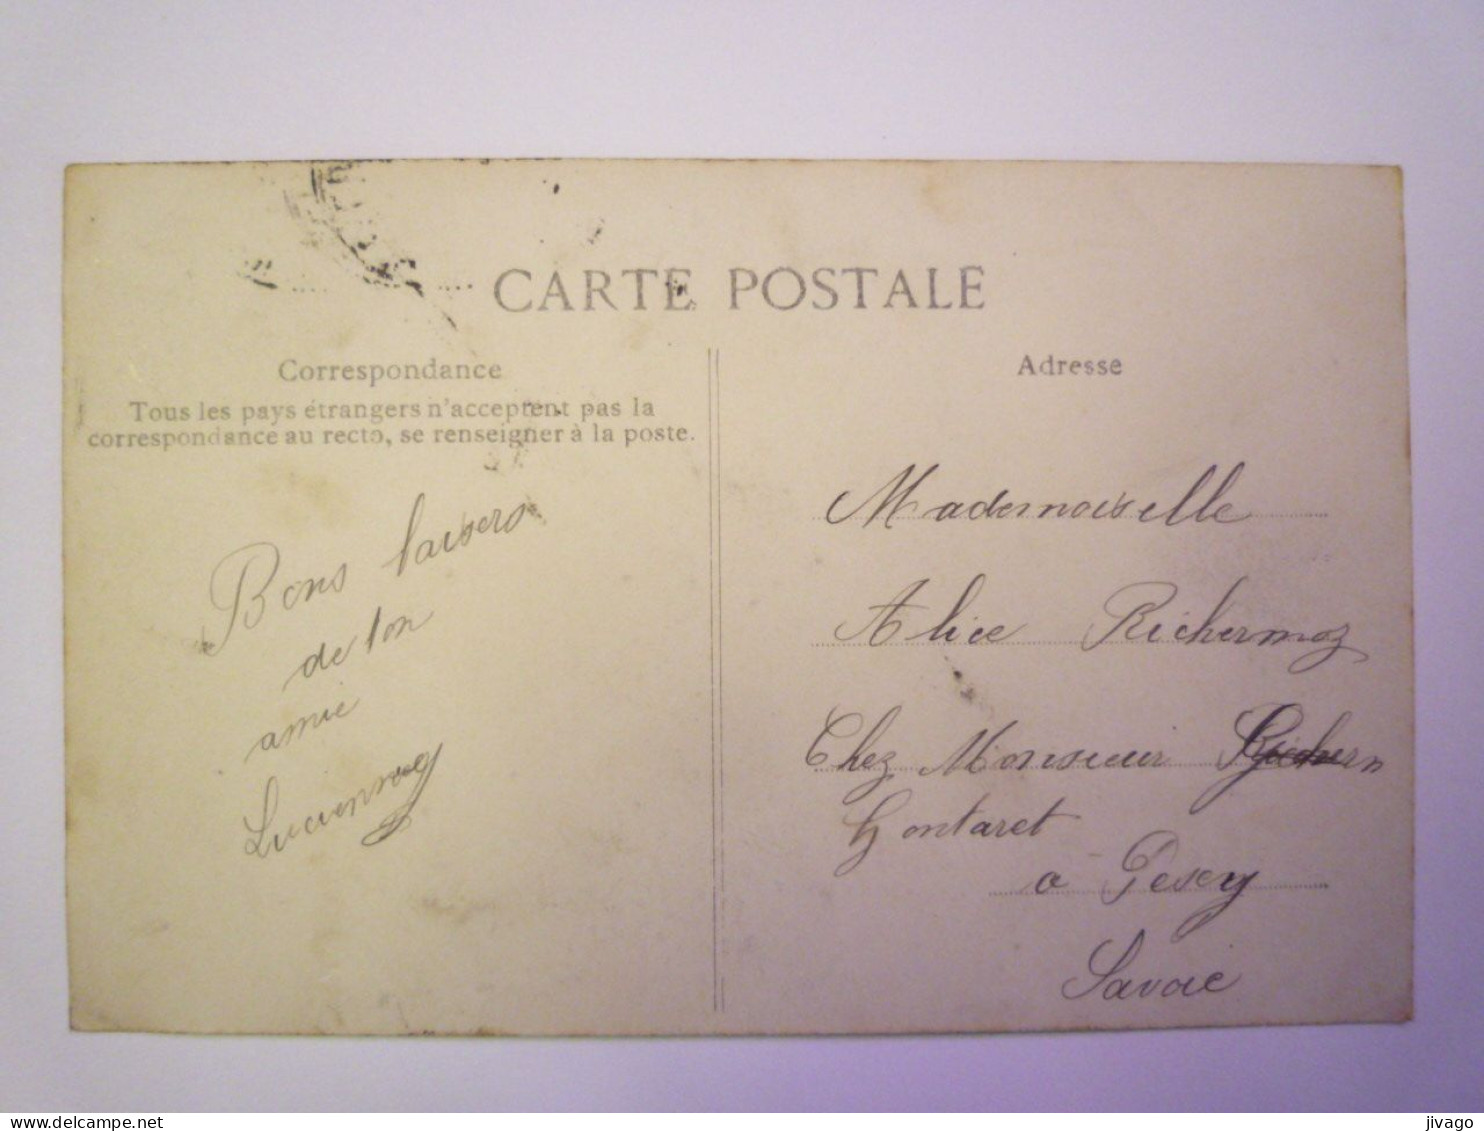 CARTE POSTALE
Correspondance
Tous les pays étrangers n'acceptent pas la
correspondance au recto, se renseigner à la poste.
Bons baisers
de ton
amie
Adresse
Mademoiselle
Alice Richermoz
Chez Monsieur
Gontaret
a Pesey
Savoie
delcampe.net
jivago